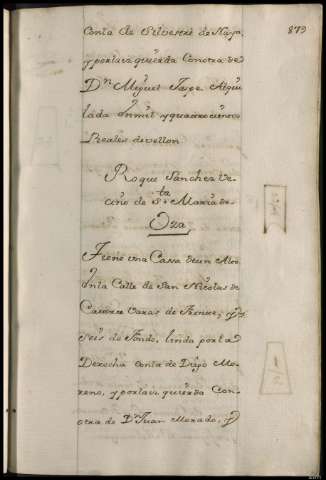 873
Conta de Silvestre de Naya
y por la izquierda Conotra de
Dn. Miguel Jaspe Alqui
lada en mil y quatrocientos
Reales de vellon
Roque Sanchez Ve-
cino de Sta. Maria de
Oza
Tiene una Cassa de un Alto
en la Calle de San Nicolas de
Catorce varas de frente, y
seis de fondo, linda por la
Derecha conta de Diego Mo-
reno, y por la izquierda Con
otra de Dn. Juan Morado, y